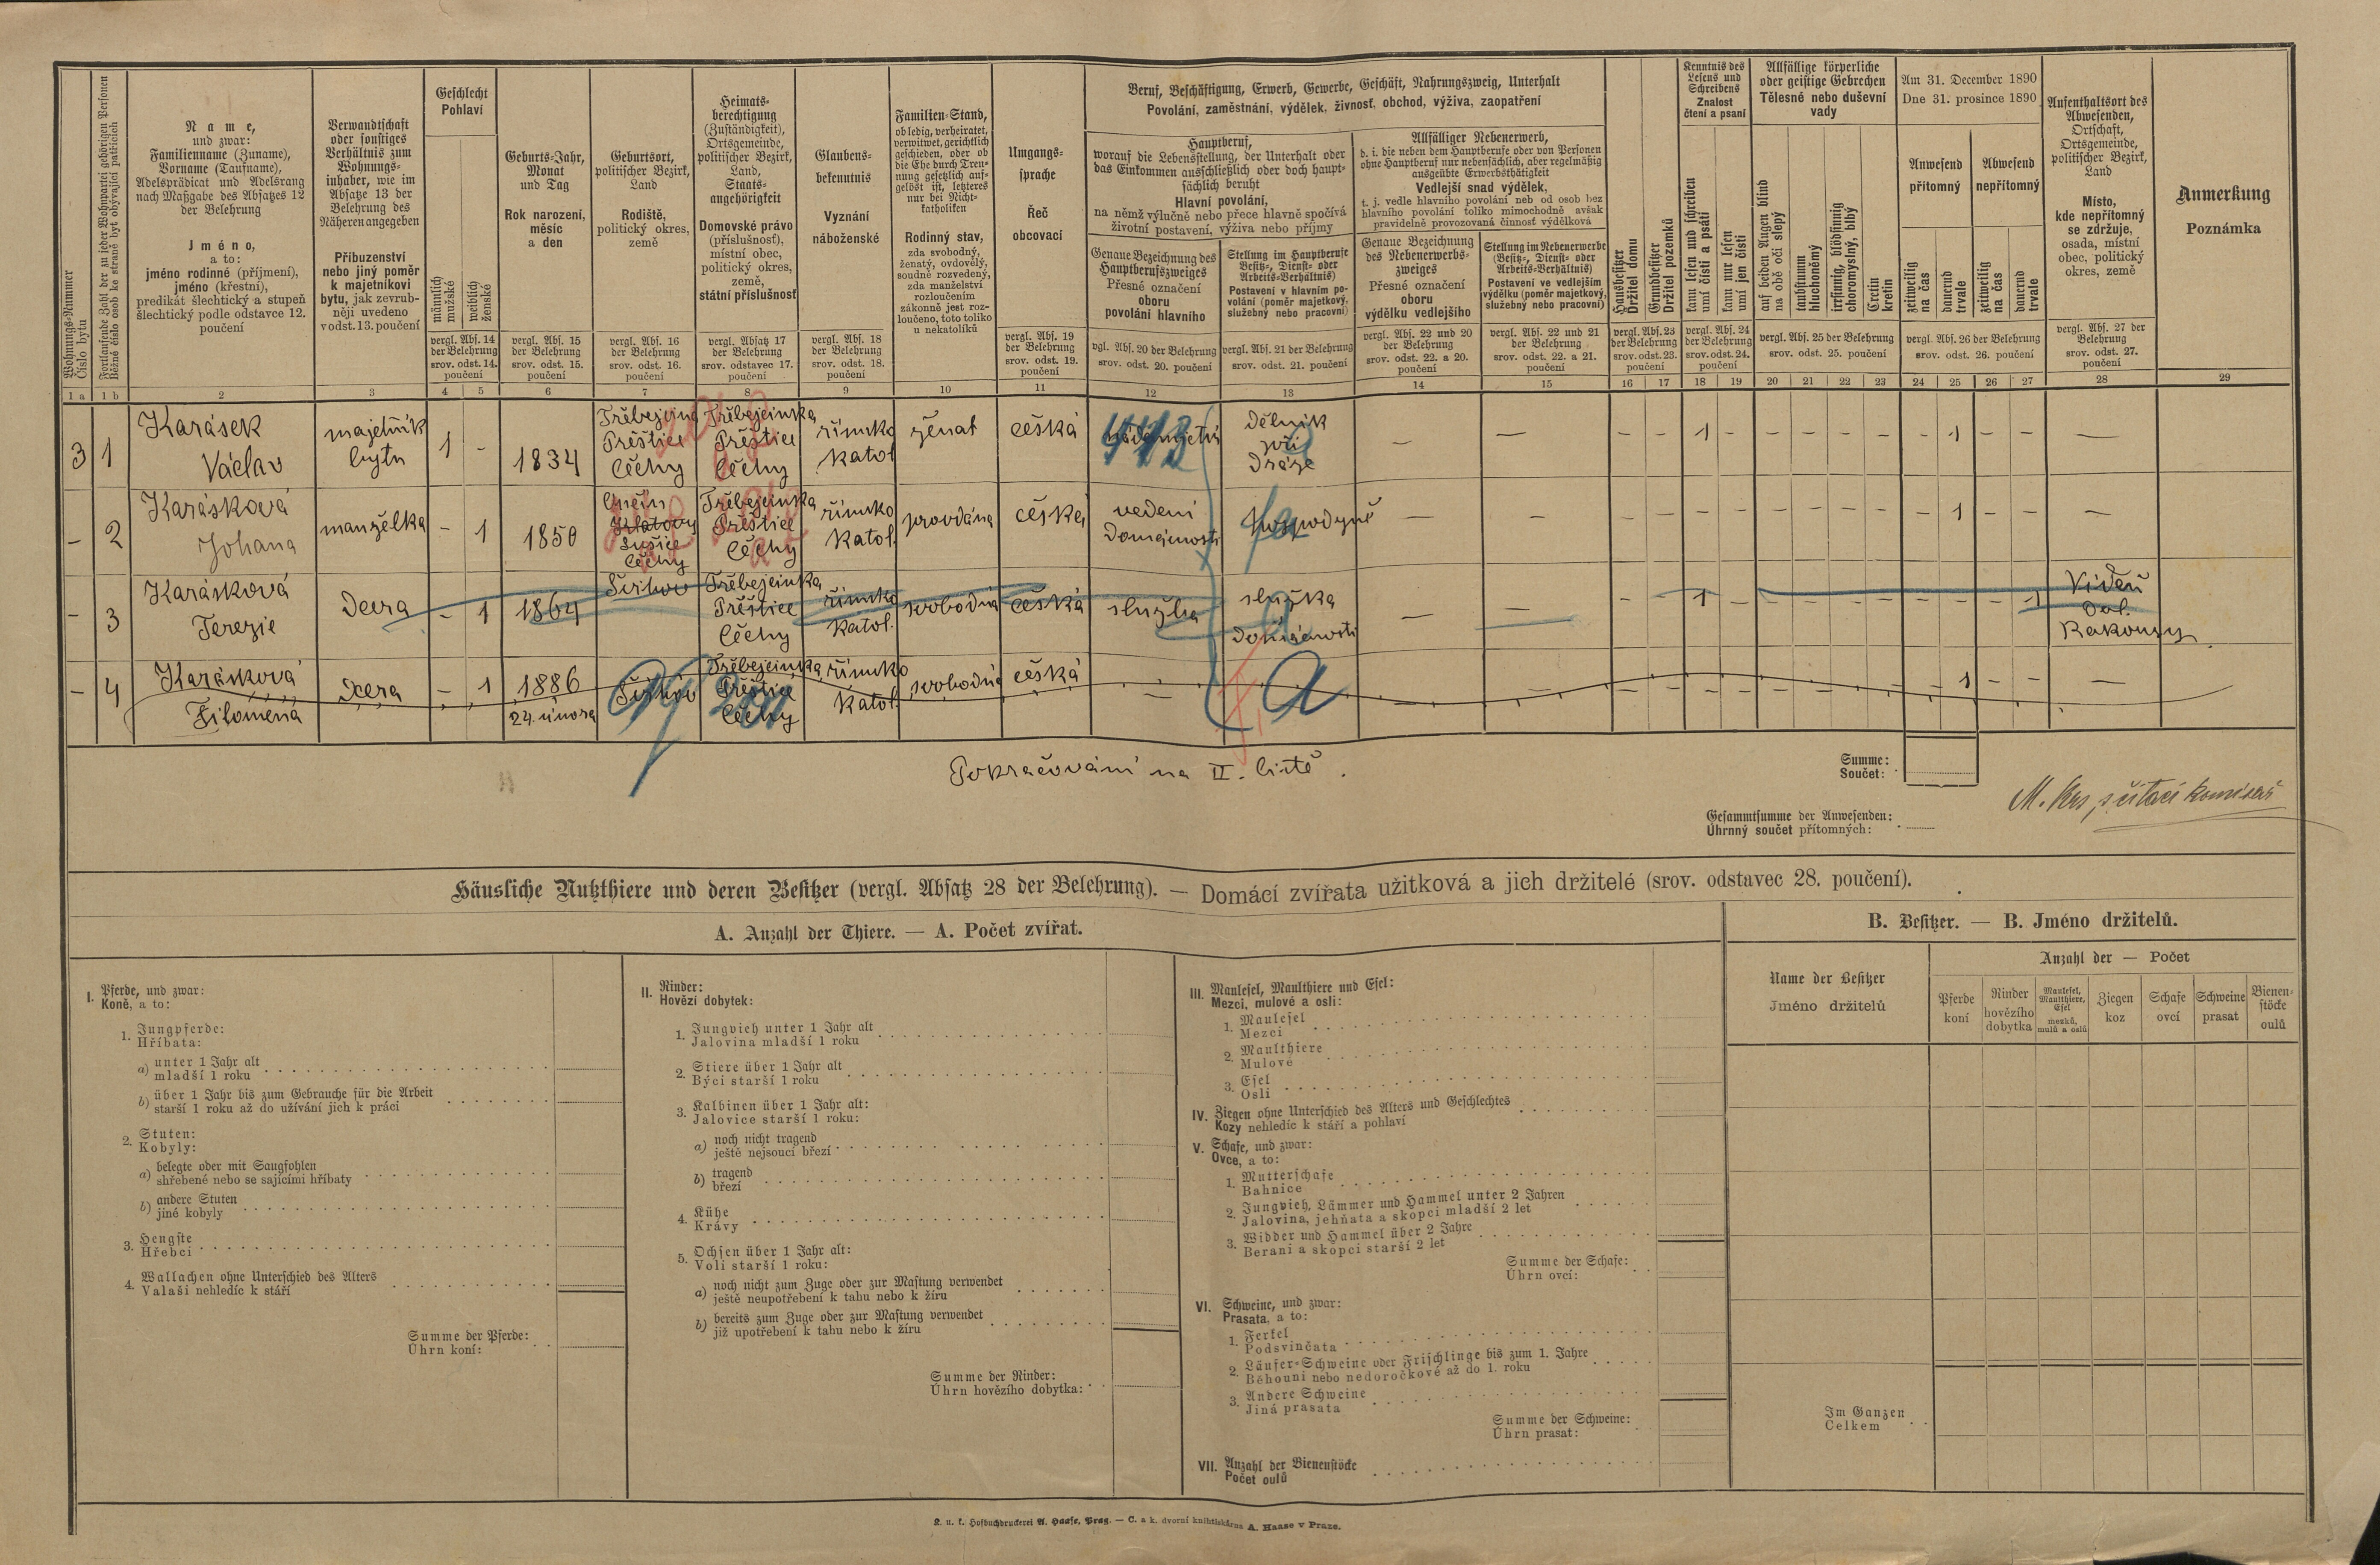 Wohnungs-Nummer
Číslo bytu
Fortlaufende Zahl der zu jeder Wohnpartei gehörigen Personen
Běžné číslo osob ke straně byt obývající patřících
Name,
und zwar:
Familienname (Zuname),
Vorname (Taufname),
Adelsprädicat und Adelsrang
nach Maßgabe des Absatzes 12
der Belehrung
Jméno,
a to:
jméno rodinné (příjmení),
jméno (křestní),
predikát šlechtický a stupeň
šlechtický podle odstavce 12.
poučení
Verwandtschaft
oder sonstiges
Verhältnis zum
Wohnungs-
inhaber, wie im
Absatze 13 der
Belehrung des
Näheren angegeben
Příbuzenství
nebo jiný poměr
k majetníkovi
bytu, jak zevrub-
něji uvedeno
v odst. 13. poučení
Geschlecht
Pohlaví
männlich
mužské
weiblich
ženské
vergl. Abs. 14
der Belehrung
srov. odst. 14.
poučení
Geburts-Jahr,
Monat
und Tag
Rok narození,
měsíc
a den
vergl. Abs. 15
der Belehrung
srov. odst. 15.
poučení
Geburtsort,
politischer Bezirk,
Land
Rodiště,
politický okres,
země
vergl. Abs. 16
der Belehrung
srov. odst. 16.
poučení
Heimats-
berechtigung
(Zuständigkeit),
Ortsgemeinde,
politischer Bezirk,
Land,
Staats-
angehörigkeit
Domovské právo
(příslušnosť),
místní obec,
politický okres,
země,
státní příslušnosť
vergl. Absatz 17
der Belehrung
srov. odstavec 17.
poučení
Glaubens-
bekenntnis
Vyznání
náboženské
vergl. Abs. 18
der Belehrung
srov. odst. 18.
poučení
Familien-Stand,
ob ledig, verheiratet,
verwitwet, gerichtlich
geschieden, oder ob
die Ehe durch Tren-
nung gesetzlich auf-
gelöst ist, letzteres
nur bei Nicht-
katholiken
Rodinný stav,
zda svobodný,
ženatý, ovdovělý,
soudně rozvedený,
zda manželství
rozloučením
zákonně jest roz-
loučeno, toto toliko
u nekatolíků
Umgangs-
sprache
Řeč
obcovací
vergl. Abs. 19
der Belehrung
srov. odst. 19.
poučení
Beruf, Beschäftigung, Erwerb, Gewerbe, Geschäft, Nahrungszweig, Unterhalt
Povolání, zaměstnání, výdělek, živnosť, obchod, výživa, zaopatření
Hauptberuf,
worauf die Lebensstellung, der Unterhalt oder
das Einkommen ausschließlich oder doch haupt-
sächlich beruht
Hlavní povolání,
na němž výlučně nebo přece hlavně spočívá
životní postavení, výživa nebo příjmy
Genaue Bezeichnung des
Hauptberufszweiges
Přesné označení
oboru
povolání hlavního
vgl. Abs. 20 der Belehrung
srov. odst. 20. poučení
Stellung im Hauptberufe
(Besitz-, Dienst- oder
Arbeits-Verhältnis)
Postavení v hlavním po-
volání (poměr majetkový,
služebný nebo pracovní)
vergl. Abs. 21 der Belehrung
srov. odst. 21. poučení
Allfälliger Nebenerwerb,
d. i. die neben dem Hauptberufe oder von Personen
ohne Hauptberuf nur nebensächlich, aber regelmäßig
ausgeübte Erwerbsthätigkeit
Vedlejší snad výdělek,
t. j. vedle hlavního povolání neb od osob bez
hlavního povolání toliko mimochodně avšak
pravidelně provozovaná činnosť výdělková
Genaue Bezeichnung
des Nebenerwerbs-
zweiges
Přesné označení
oboru
výdělku vedlejšího
vergl. Abs. 22 und 20
der Belehrung
srov. odst. 22. a 20.
poučení
Stellung im Nebenerwerbe
(Besitz-, Dienst- oder
Arbeits-Verhältnis)
Postavení ve vedlejším
výdělku (poměr majetkový,
služebný nebo pracovní)
vergl. Abs. 22 und 21
der Belehrung
srov. odst. 22. a 21.
poučení
Hausbesitzer
Držitel domu
Grundbesitzer
Držitel pozemků
vergl. Abs. 23
der Belehrung
srov. odst. 23.
poučení
Kenntnis des
Lesens und
Schreibens
Znalost
čtení a psaní
kann lesen und schreiben
umí čísti a psáti
kann nur lesen
umí jen čísti
vergl. Abs. 24
der Belehrung
srov. odst. 24.
poučení
Allfällige körperliche
oder geistige Gebrechen
Tělesné nebo duševní
vady
auf beiden Augen blind
na obě oči slepý
taubstumm
hluchoněmý
irrsinnig, blödsinnig
choromyslný, blbý
Cretin
kretin
vergl. Abs. 25 der Belehrung
srov. odst. 25. poučení
Am 31. December 1890
Dne 31. prosince 1890
Anwesend
přítomný
Abwesend
nepřítomný
zeitweilig
na čas
dauernd
trvale
zeitweilig
na čas
dauernd
trvale
vergl. Abs. 26 der Belehrung
srov. odst. 26. poučení
Aufenthaltsort des
Abwesenden,
Ortschaft,
Ortsgemeinde,
politischer Bezirk,
Land
Místo,
kde nepřítomný
se zdržuje,
osada, místní
obec, politický
okres, země
vergl. Abs. 27 der
Belehrung
srov. odst. 27.
poučení
Anmerkung
Poznámka
1 a 1 b 2 3 4 5 6 7 8 9 10 11 12 13 14 15 16 17 18 19 20 21 22 23 24 25 26 27 28 29
3 1 Karásek
Václav
majetník
bytu
1 - 1834
Přeštice
Čechy
Přeštice
Čechy
římsko
katol
ženat
česká
dělník
při
dráze
— — - - 1 - - - - - - 1 - - —
- 2 Karásková
Johana
manželka
- 1 1850
Klatovy
Sušice
Čechy
Přeštice
Čechy
římsko
katol.
provdána
česká
vedení
domácnosti
hospodyně
— — - - - - - - - - - 1 - - —
- 3 Karásková
Terezie
dcera
- 1 1864
Přeštice
Čechy
římsko
katol.
svobodná
česká
služba
služka
domácnosti
— — - - 1 - - - - - - - - 1
Vídeň
Dol.
Rakousy
- 4 Karásková
Filoména
dcera
- 1 1886
24. února
Přeštice
Čechy
římsko
katol.
svobodná
česká
— a — — - - - - - - - - - 1 - - —
Pokračování na II. listě.
Summe:
Součet:
M. Krs, sčítací komisař
Gesammtsumme der Anwesenden:
Úhrnný součet přítomných:
Häusliche Nutzthiere und deren Besitzer (vergl. Absatz 28 der Belehrung). — Domácí zvířata užitková a jich držitelé (srov. odstavec 28. poučení).
A. Anzahl der Thiere. — A. Počet zvířat.
I. Pferde, und zwar:
Koně, a to:
1. Jungpferde:
Hříbata:
a) unter 1 Jahr alt
mladší 1 roku
b) über 1 Jahr bis zum Gebrauche für die Arbeit
starší 1 roku až do užívání jich k práci
2. Stuten:
Kobyly:
a) belegte oder mit Saugfohlen
shřebené nebo se sajícími hříbaty
b) andere Stuten
jiné kobyly
3. Hengste
Hřebci
4. Wallachen ohne Unterschied des Alters
Valaši nehledíc k stáří
Summe der Pferde:
Úhrn koní:
II. Rinder:
Hovězí dobytek:
1. Jungvieh unter 1 Jahr alt
Jalovina mladší 1 roku
2. Stiere über 1 Jahr alt
Býci starší 1 roku
3. Kalbinen über 1 Jahr alt:
Jalovice starší 1 roku:
a) noch nicht tragend
ještě nejsoucí březí
b) tragend
březí
4. Kühe
Krávy
5. Ochsen über 1 Jahr alt:
Voli starší 1 roku:
a) noch nicht zum Zuge oder zur Mastung verwendet
ještě neupotřebení k tahu nebo k žíru
b) bereits zum Zuge oder zur Mastung verwendet
již upotřebení k tahu nebo k žíru
Summe der Rinder:
Úhrn hovězího dobytka:
III. Maulesel, Maulthiere und Esel:
Mezci, mulové a osli:
1. Maulesel
Mezci
2. Maulthiere
Mulové
3. Esel
Osli
IV. Ziegen ohne Unterschied des Alters und Geschlechtes
Kozy nehledíc k stáří a pohlaví
V. Schafe, und zwar:
Ovce, a to:
1. Mutterschafe
Bahnice
2. Jungvieh, Lämmer und Hammel unter 2 Jahren
Jalovina, jehňata a skopci mladší 2 let
3. Widder und Hammel über 2 Jahre
Berani a skopci starší 2 let
Summe der Schafe:
Úhrn ovcí:
VI. Schweine, und zwar:
Prasata, a to:
1. Ferkel
Podsvinčata
2. Läufer-Schweine oder Frischlinge bis zum 1. Jahre
Běhouni nebo nedoročkové až do 1. roku
3. Andere Schweine
Jiná prasata
Summe der Schweine:
Úhrn prasat:
VII. Anzahl der Bienenstöcke
Počet oulů
B. Besitzer. — B. Jméno držitelů.
Name der Besitzer
Jméno držitelů
Anzahl der — Počet
Pferde
koní
Rinder
hovězího
dobytka
Maulesel,
Maulthiere,
Esel
mezků,
mulů a oslů
Ziegen
koz
Schafe
ovcí
Schweine
prasat
Bienen-
stöcke
oulů
Im Ganzen
Celkem
K. u. k. Hofbuchdruckerei A. Haase, Prag. — C. a k. dvorní knihtiskárna A. Haase v Praze.